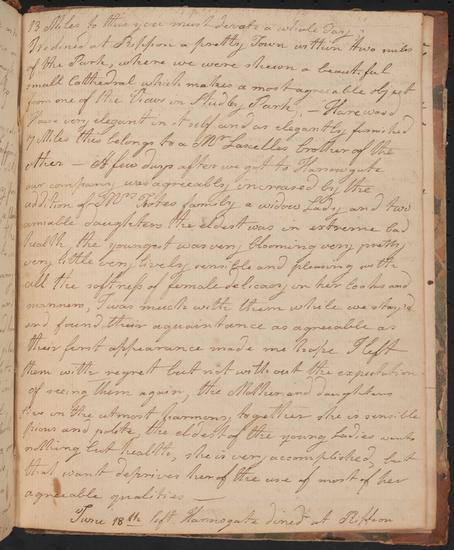 13 Miles to this you must devote a whole day.
We dined at Rippon a pretty Town within two miles
of the Park, where we were shewn a beautiful
small Cathedral which makes a most agreable object
from one of the Views in Studley Park, — Harewood
House very elegant in itself and as elegantly furnished
7 Miles this belongs to a Mr Lascelles brother of the
other — A few days after we got to Harrogate
our company was agreeably increased by the
addition of Mrs family a widow Lady and two
amiable daughters the eldest was in extreme bad
health, the youngest was very blooming very pretty
very little very lively sensible and pleasing with
all the softness of female delicacy in her looks and
manners, I was much with them while we stay'd
and found their acquaintance as agreeable as
their first appearance made me hope I left
them with regret but not without the expectation
of seeing them again, the Mother and daughters
live in the utmost harmony together she is sensible
pious and polite the eldest of the young Ladies wants
nothing but health, she is very accomplished, but
that want deprives her of the use of most of her
agreeable qualities —
June 18th left Harrogate dined at Rippon